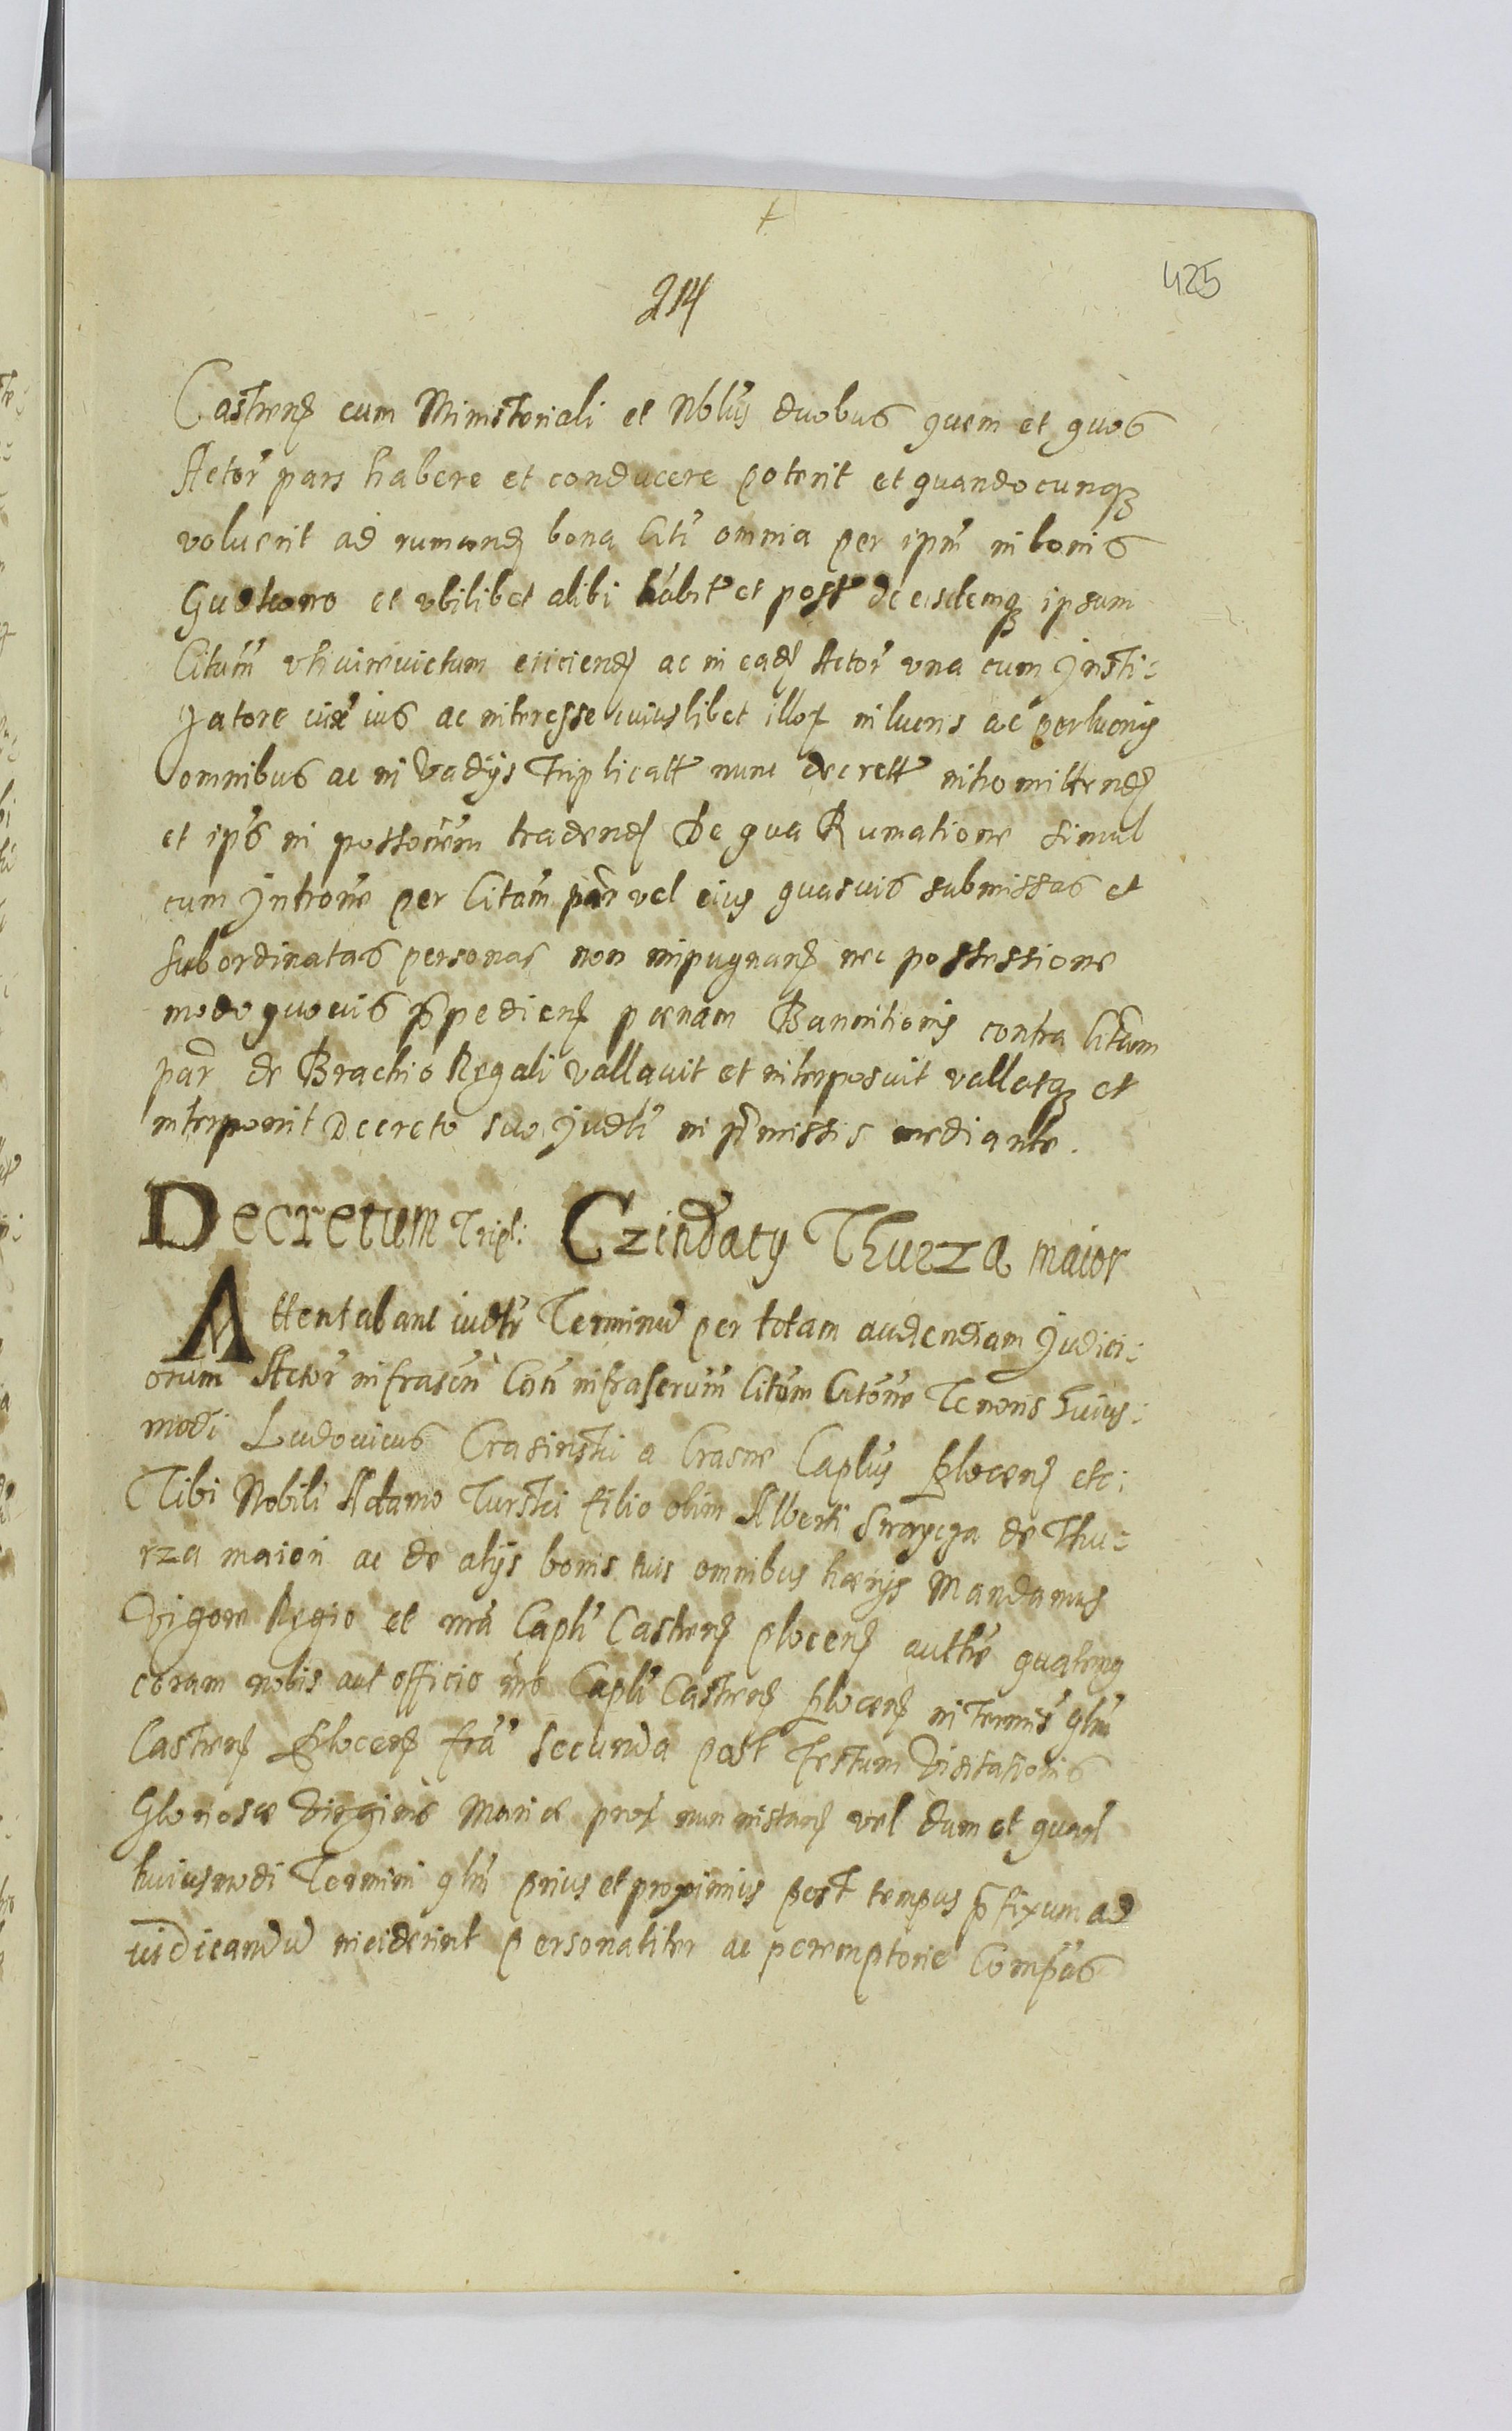 425
214
Castren cum Ministeriali et Nblus duobus quem et quos
Actor pars habere et conducere poterit et quandocunq
voluerit ad rumand bona Citi omnia per ipm in bonis
et vbilibet alibi habit et poss de eisdemq ipsum
Citatum vti eiiciend ac in ead Actor vna cum Insti:
gatore ius ac interesse cuiuslibet illor in lucris ac perlucris
omnibus ac in Vadijs Triplicatt nunc decrett intromittend
et ips in possonem tradend De qua Rumatione simul
cum Introne per Citam par vel eius quasuis submissas et
subordinatas personas non inpugnan nec possessione
modo quouis ppedien poenam Bannitionis contra Citum
par de Brachio Regali vallauit et interposuit vallatq et
interponit Decreto suo Judli in pmissis mediante.
Decretum Tripl: Czindaty Thurza maior
Attentabant iudtr Terminu per totam audendiam Judici:
orum Actor infrascri Citi infrascrum Citum Citone Tenoris huius:
modi Ludouicus Crasinski a Crasne Caplus Plocen etc:
Tibi Nobili Adamo Turski filio olim Alberti de Thu:
rza maiori ac de alijs bonis tuis omnibus haerijs Mandamus
Vigore Regio et nra Capli Castren plocen autte quatenq
coram nobis aut officio nro Capli Castren Plocen in Termis glni
Castren Plocen fra Secunda post Festum Visitationis
Gloriosae Virginis Mariae prox nun instan vel dum et quan
huiusmodi Termini glni prius et proximius post tempus pfixum ad
iudicandu inciderint personaliter ac peremptorie Compas